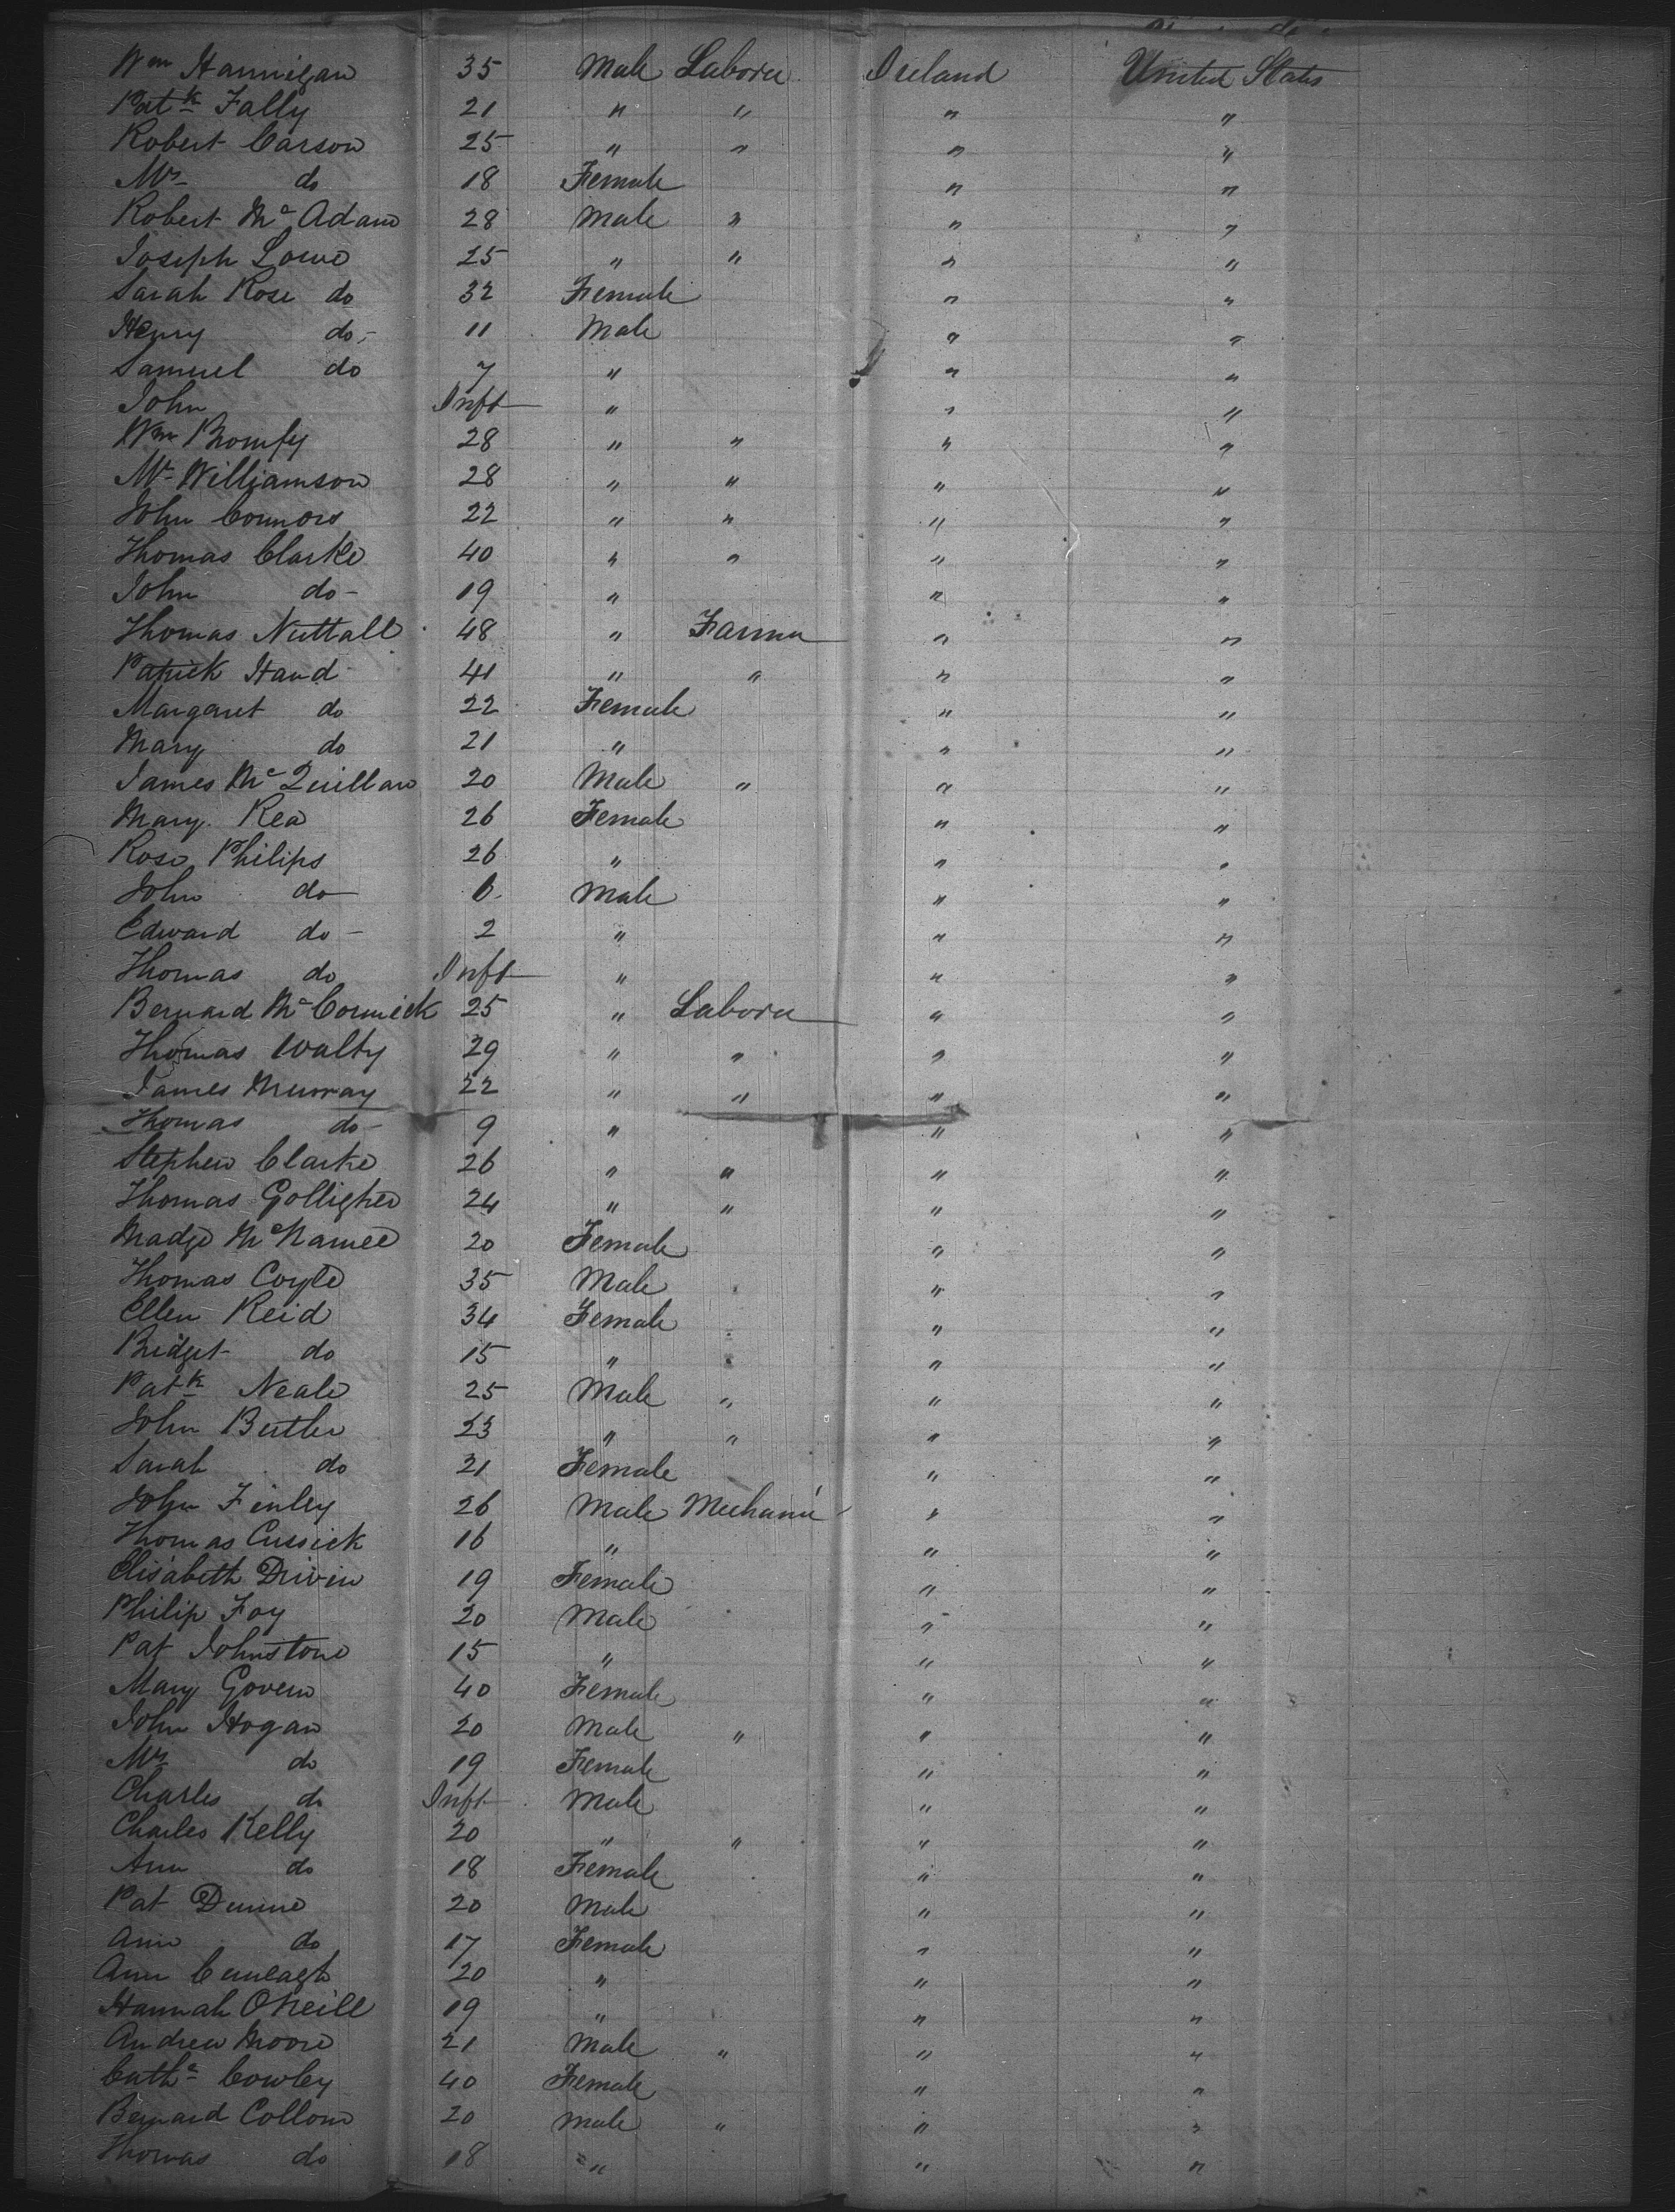 Wm Hannigan 35 Male Laborer Ireland United States
Patk Fally 21 " " " "
Robert Carson 25 " " " "
Mrs do 18 Female " "
Robert Mc Adam 28 Male " " "
Joseph Lowe 25 " " " "
Sarah Rose do 32 Female " "
Henry do 11 Male " "
Samuel do 7 " " "
John Inft " " "
Wm 28 " " " "
Mr Williamson 28 " " " "
John Connors 22 " " " "
Thomas Clarke 40 " " " "
John do 19 " " "
Thomas Nuttall 48 " Farmer " "
Patrick Hand 41 " " " "
Margaret do 22 Female " "
Mary do 21 " " "
James Mc Quillan 20 Male " " "
Mary Rea 26 Female " "
Rose Philips 26 " " "
John do 6 Male " "
Edward do 2 " " "
Thomas do Inft " " "
Bernard Mc Cormick 25 " Laborer " "
Thomas Walty 29 " " " "
James Murray 22 " " " "
Thomas do 9 " " "
Stephen Clarke 26 " " " "
Thomas Golligher 24 " " " "
Madge McNamee 20 Female " "
Thomas Coyle 35 Male " "
Ellen Reid 34 Female " "
Bridget do 15 " " "
Patk Neale 25 Male " " "
John Butler 23 " " " "
Sarah do 21 Female " "
John Finley 26 Male Mechanic " "
Thomas Cussick 16 " " "
Elisabeth Drivin 19 Female " "
Philip Foy 20 Male " "
Pat Johnstone 15 " " "
Mary Govern 40 Female " "
John Hogan 20 Male " " "
Mrs do 19 Female " "
Charles do Inft Male " "
Charles Kelly 20 " " " "
Ann do 18 Female " "
Pat Dunne 20 Male " "
Ann do 17 Female " "
Ann 20 " " "
Hannah O'Neill 19 " " "
Andrew Moore 21 Male " " "
Cathe Cowley 40 Female " "
Bernard Collom 20 Male " " "
Thomas do 18 " " "